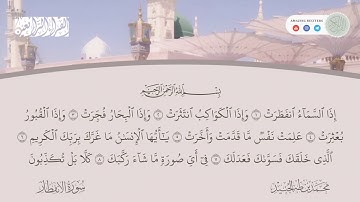 AMAZING RECITERS
بِسْمِ ٱللَّهِ ٱلرَّحْمَٰنِ ٱلرَّحِيمِ
إِذَا ٱلسَّمَآءُ ٱنفَطَرَتْ ١ وَإِذَا ٱلْكَوَاكِبُ ٱنتَثَرَتْ ٢ وَإِذَا ٱلْبِحَارُ فُجِّرَتْ ٣ وَإِذَا ٱلْقُبُورُ
بُعْثِرَتْ ٤ عَلِمَتْ نَفْسٌ مَّا قَدَّمَتْ وَأَخَّرَتْ ٥ يَـٰٓأَيُّهَا ٱلْإِنسَـٰنُ مَا غَرَّكَ بِرَبِّكَ ٱلْكَرِيمِ ٦
ٱلَّذِى خَلَقَكَ فَسَوَّىٰكَ فَعَدَلَكَ ٧ فِىٓ أَىِّ صُورَةٍ مَّا شَآءَ رَكَّبَكَ ٨ كَلَّا بَلْ تُكَذِّبُونَ
سُورَةُ الانفطار